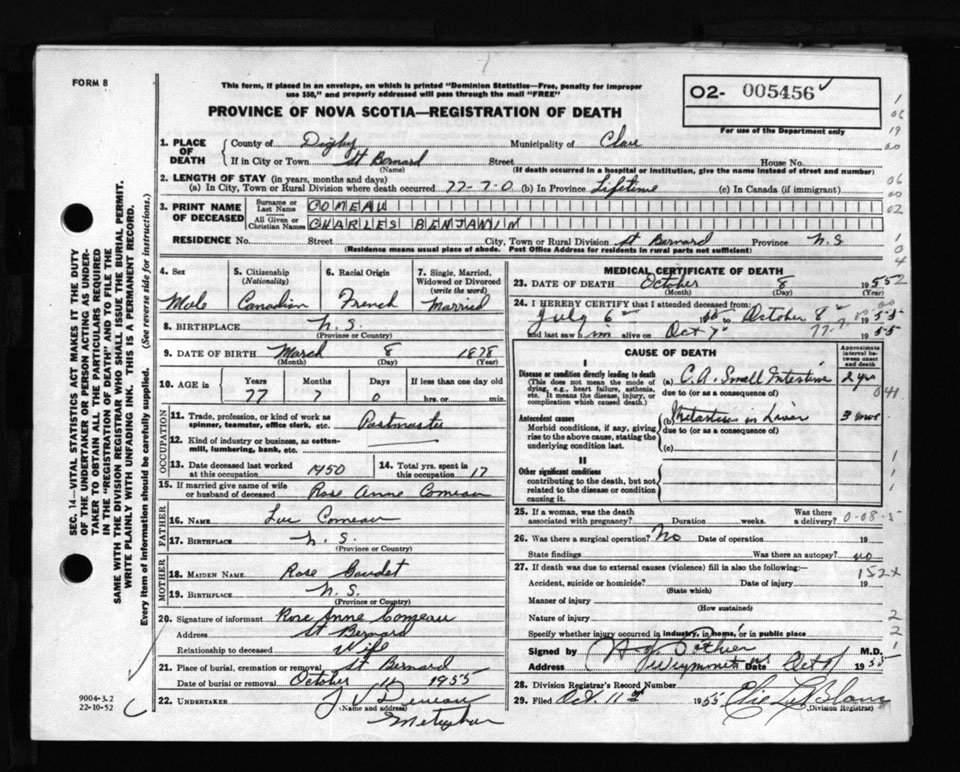 FORM 8
This form, if placed in an envelope, on which is printed "Dominion Statistics—Free, penalty for improper
use $50," and properly addressed will pass through the mail "FREE"
O2- 005456
PROVINCE OF NOVA SCOTIA—REGISTRATION OF DEATH
For use of the Department only
1. PLACE OF DEATH County of Digby Municipality of Clare
If in City or Town St Bernard Street House No.
(Name) (If death occurred in a hospital or institution, give the name instead of street and number)
2. LENGTH OF STAY (in years, months and days)
(a) In City, Town or Rural Division where death occurred 77-7-0 (b) In Province Lifetime (c) In Canada (if immigrant)
3. PRINT NAME OF DECEASED Surname or Last Name COMEAU
All Given or Christian Names CHARLES BENJAMIN
RESIDENCE No. Street City, Town or Rural Division St Bernard Province N.S.
(Residence means usual place of abode. Post Office Address for residents in rural parts not sufficient)
4. Sex 5. Citizenship (Nationality) 6. Racial Origin 7. Single, Married, Widowed or Divorced (write the word)
Male Canadian French Married
8. BIRTHPLACE N.S.
(Province or Country)
9. DATE OF BIRTH March 8 1878
(Month) (Day) (Year)
10. AGE in Years Months Days If less than one day old
77 7 0 hrs. or min.
OCCUPATION
11. Trade, profession, or kind of work as spinner, teamster, office clerk, etc. Postmaster
12. Kind of industry or business, as cotton-mill, lumbering, bank, etc.
13. Date deceased last worked at this occupation 1950 14. Total yrs. spent in this occupation 17
15. If married give name of wife or husband of deceased Rose Anne Comeau
FATHER
16. NAME Luc Comeau
17. BIRTHPLACE N.S.
(Province or Country)
MOTHER
18. MAIDEN NAME Rose Gaudet
19. BIRTHPLACE N.S.
(Province or Country)
20. Signature of informant Rose Anne Comeau
Address St Bernard
Relationship to deceased Wife
21. Place of burial, cremation or removal St Bernard
Date of burial or removal October 11 1955
22. UNDERTAKER
(Name and address)
Meteghan
MEDICAL CERTIFICATE OF DEATH
23. DATE OF DEATH October 8 1955
(Month) (Day) (Year)
24. I HEREBY CERTIFY that I attended deceased from:
July 6 to October 8 1955
and last saw him alive on Oct 7 1955
CAUSE OF DEATH
Approximate interval between onset and death
I
Disease or condition directly leading to death (a) C.A. Small Intestine 2 yrs
(This does not mean the mode of dying, e.g., heart failure, asthenia, etc. It means the disease, injury, or complication which caused death.)
due to (or as a consequence of)
Antecedent causes (b) Metastises in Liver 3 mos
Morbid conditions, if any, giving rise to the above cause, stating the underlying condition last.
due to (or as a consequence of)
(c)
II
Other significant conditions
contributing to the death, but not related to the disease or condition causing it.
25. If a woman, was the death associated with pregnancy? Duration weeks. Was there a delivery?
26. Was there a surgical operation? No Date of operation 19
State findings Was there an autopsy? no
27. If death was due to external causes (violence) fill in also the following:—
Accident, suicide or homicide? Date of injury 19
(State which)
Manner of injury
(How sustained)
Nature of injury
Specify whether injury occurred in industry, in home, or in public place
Signed by Pothier M.D.
Address Weymouth Date Oct 1955
28. Division Registrar's Record Number
29. Filed Oct. 11 1955 Elie LeBlanc
(Division Registrar)
SEC. 14—VITAL STATISTICS ACT MAKES IT THE DUTY
OF THE UNDERTAKER OR PERSON ACTING AS UNDER-
TAKER TO OBTAIN ALL THE PARTICULARS REQUIRED
IN THE "REGISTRATION OF DEATH" AND TO FILE THE
SAME WITH THE DIVISION REGISTRAR WHO SHALL ISSUE THE BURIAL PERMIT.
WRITE PLAINLY WITH UNFADING INK. THIS IS A PERMANENT RECORD.
Every item of information should be carefully supplied. (See reverse side for instructions.)
9004-3.2
22-10-52